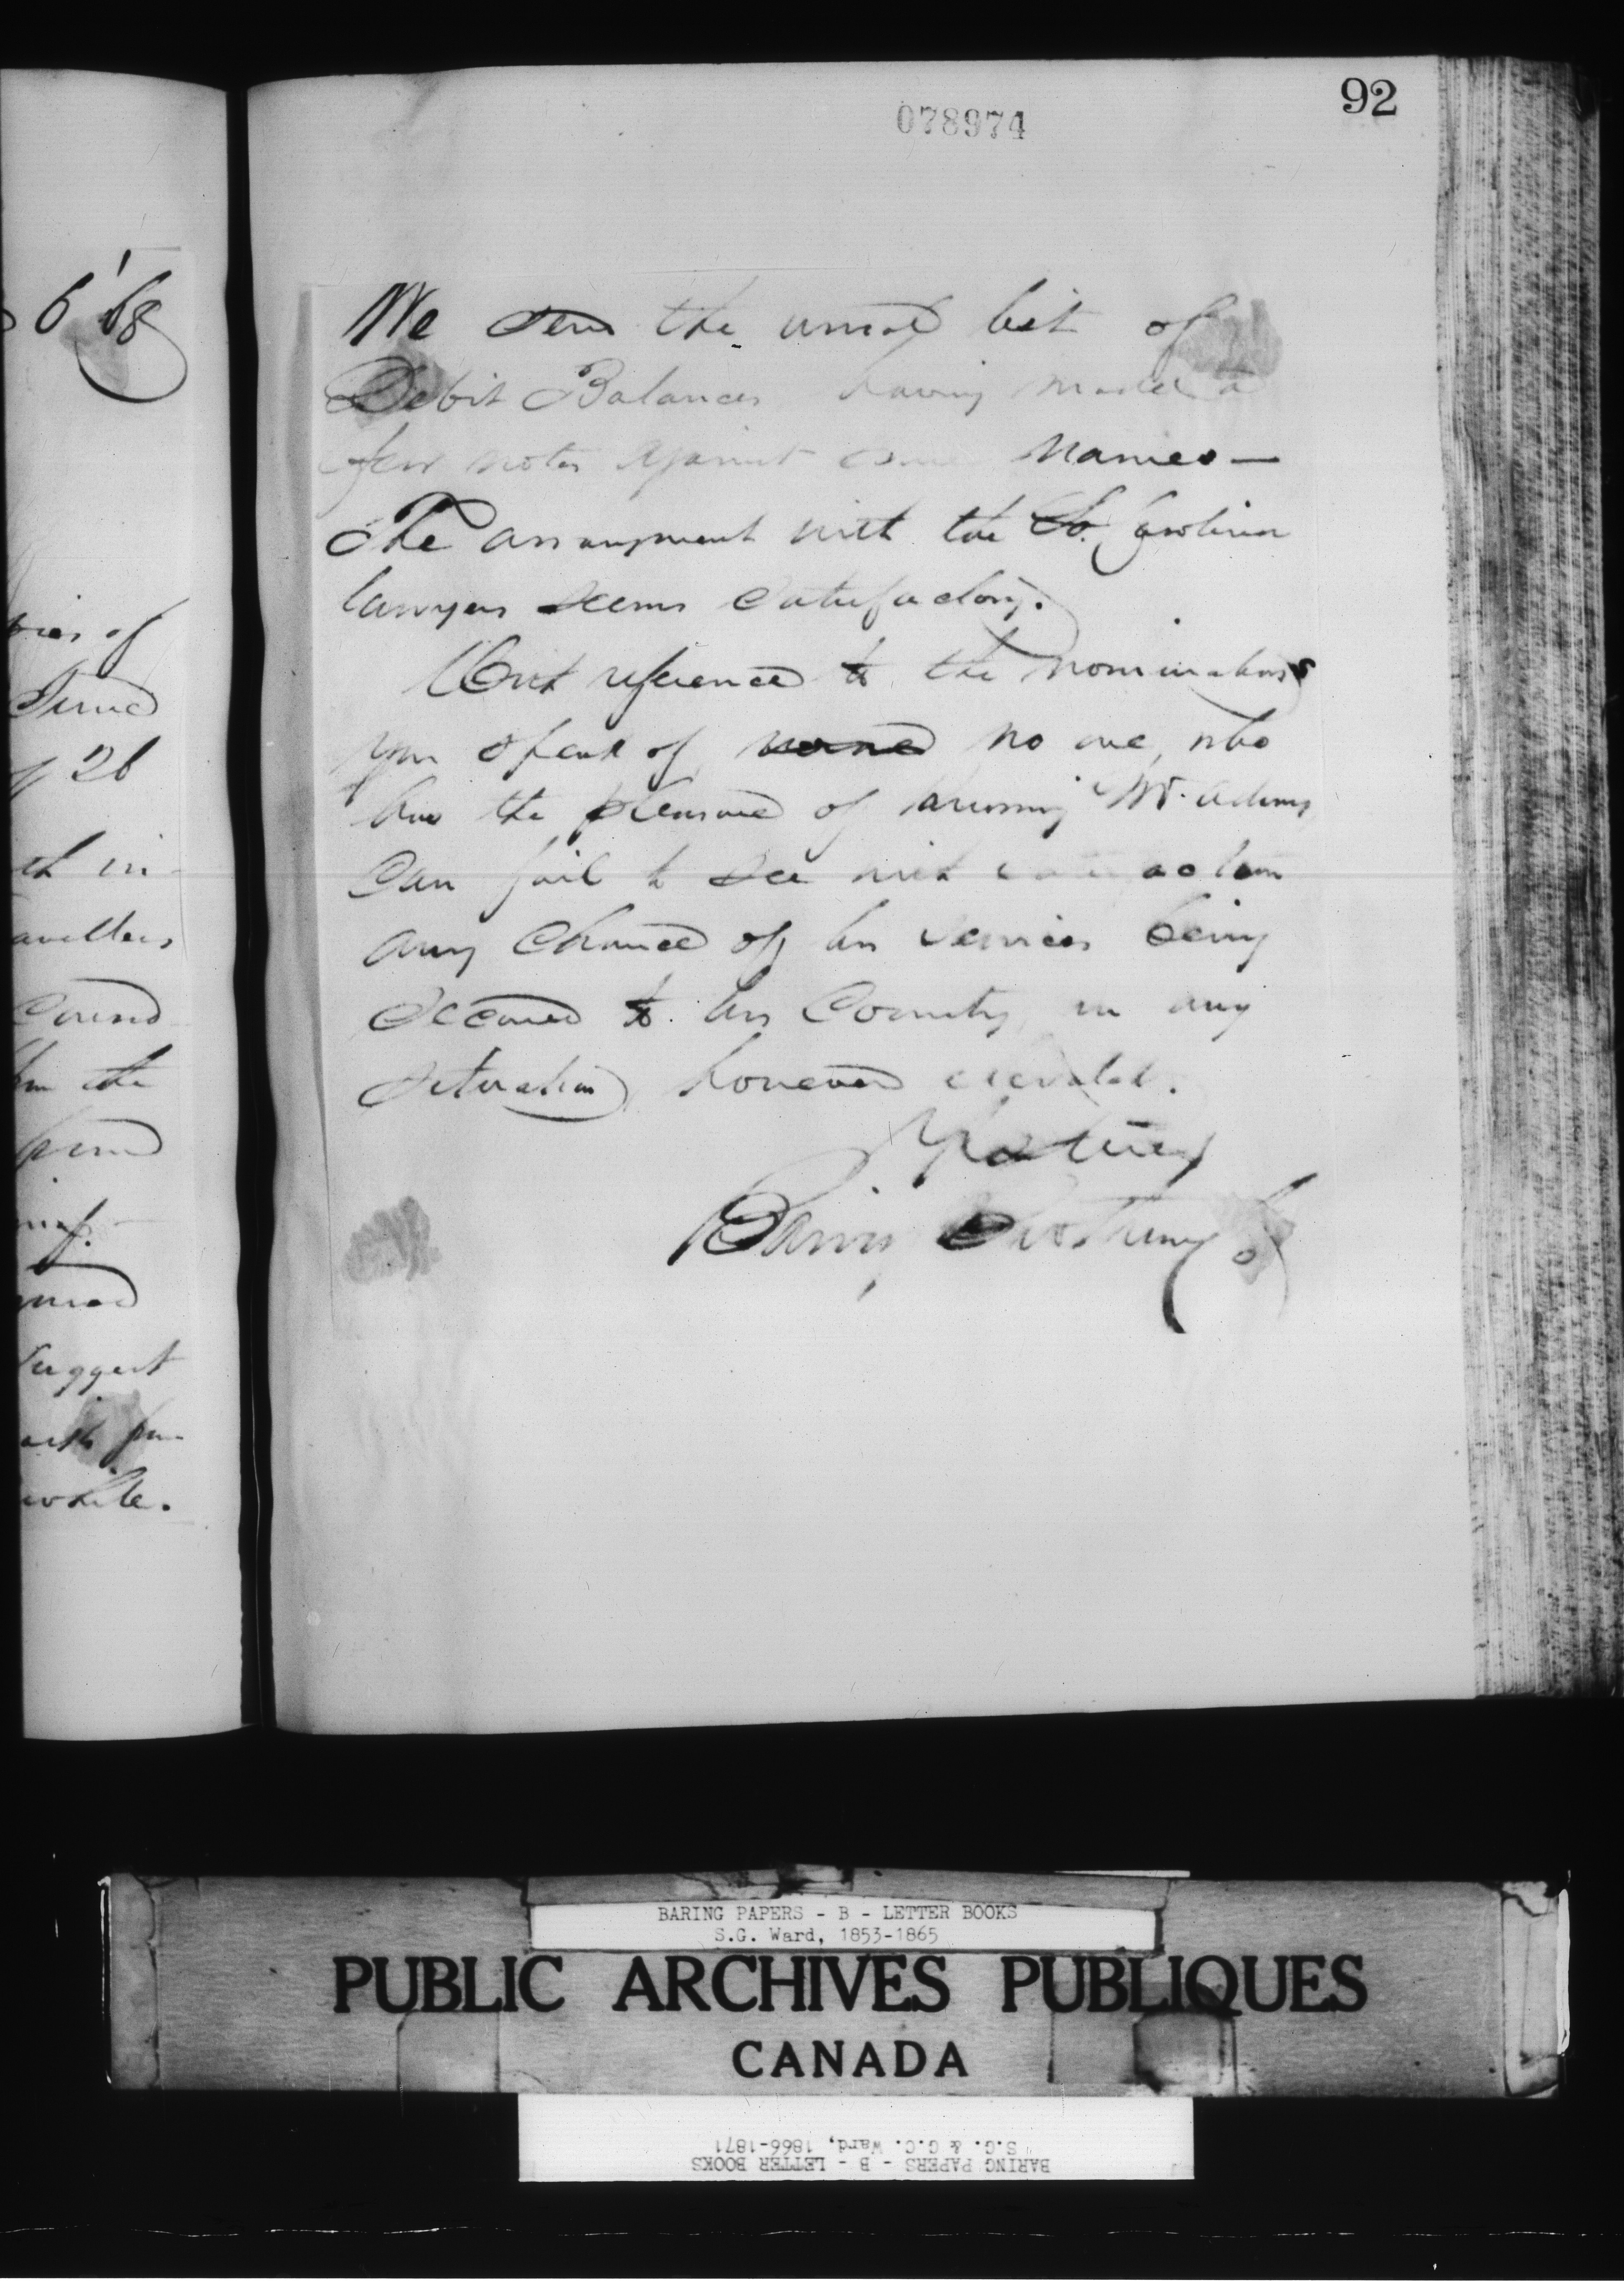 92
078974
6 '68
We send the usual list of
Debit Balances having made a
few notes against some names —
The arrangement with the So. Carolina
lawyers seems satisfactory.
With reference to the nominations
you speak of no one, who
has the pleasure of knowing Mr. Adams
can fail to see with satisfaction
any chance of his services being
secured to his Country, in any
situation however elevated.
Yrs truly
Baring Brothers &
ries of
of 26
th in
avellers
found
the
suggest
with
while.
BARING PAPERS - B - LETTER BOOKS
S.G. Ward, 1853-1865
PUBLIC ARCHIVES PUBLIQUES
CANADA
BARING PAPERS - B - LETTER BOOKS
S.G. & G.C. Ward, 1866-1871